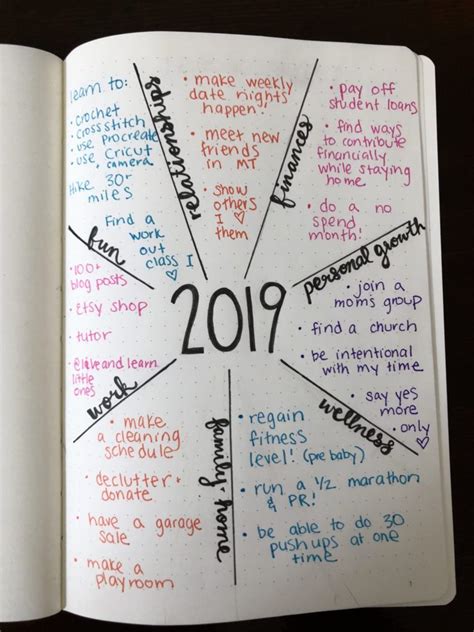 learn to:
• crochet
• cross stitch
• use procreate
• use Cricut
+ camera
Hike 30+
miles
Find a
work
out
class I
♡
fun
relationships
• make weekly
date nights
happen!
• meet new
friends
in MT
• show
others
I ♡
them
finances
• pay off
student loans
• find ways
to contribute
financially
while staying
home
• do a no
spend
month!
personal growth
• join a
moms group
• find a church
• be intentional
with my time
• say yes
more
• only ♡
2019
wellness
• regain
fitness
level! (pre baby)
• run a 1/2 marathon
& PR!
• be able to do 30
push ups at one
time
family + home
• make
a cleaning
schedule
• declutter +
donate
• have a garage
sale
• make a
playroom
work
• 100+
blog posts
• etsy shop
• tutor
• @liveandlearn
little
ones